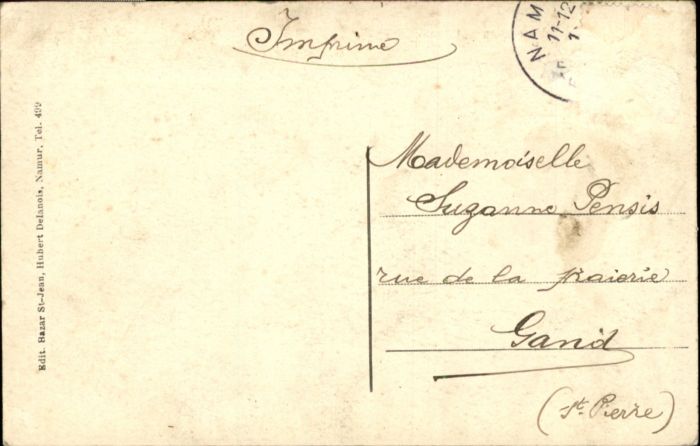 Imprime
NAM
11-12
1.
Mademoiselle
Suzanne Pensis
rue de la praierie
Gand
(St. Pierre)
Edit. Bazar St-Jean, Hubert Delanois, Namur. Tel. 499